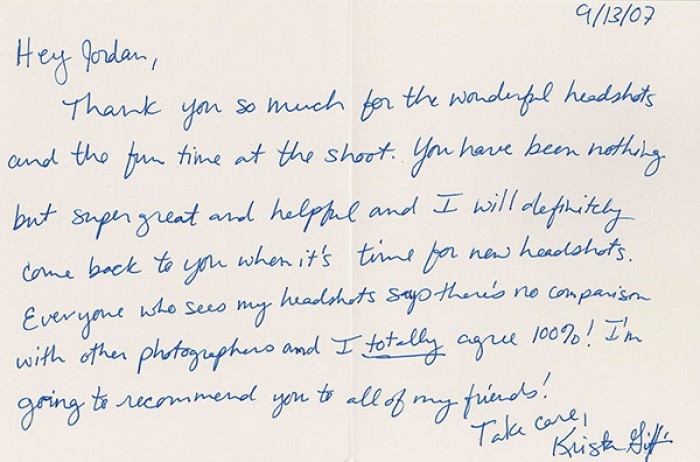 9/13/07
Hey Jordan,
Thank you so much for the wonderful headshots
and the fun time at the shoot. You have been nothing
but super great and helpful and I will definitely
come back to you when it's time for new headshots.
Everyone who sees my headshots says there's no comparison
with other photographers and I totally agree 100%! I'm
going to recommend you to all of my friends!
Take care,
Krista